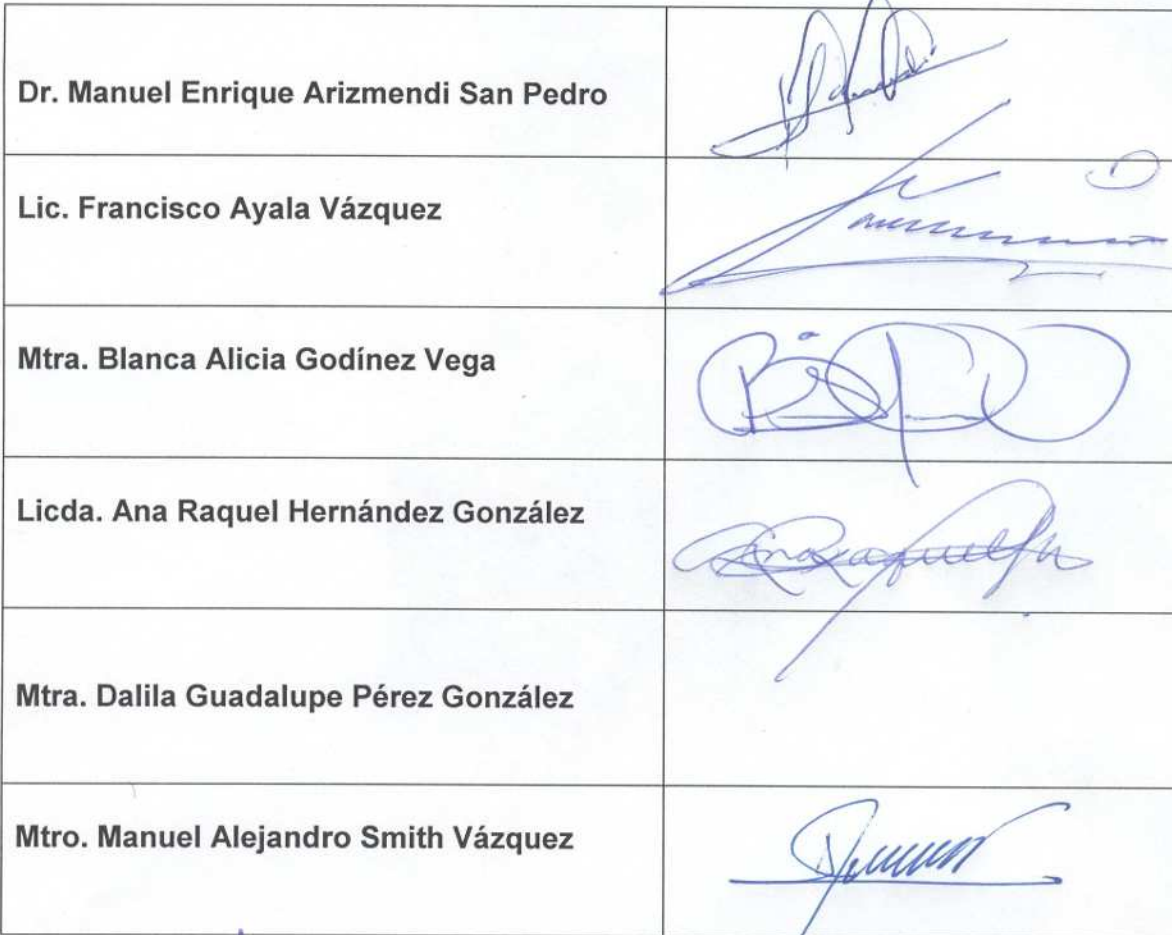 Dr. Manuel Enrique Arizmendi San Pedro
Lic. Francisco Ayala Vázquez
Mtra. Blanca Alicia Godínez Vega
Licda. Ana Raquel Hernández González
Mtra. Dalila Guadalupe Pérez González
Mtro. Manuel Alejandro Smith Vázquez